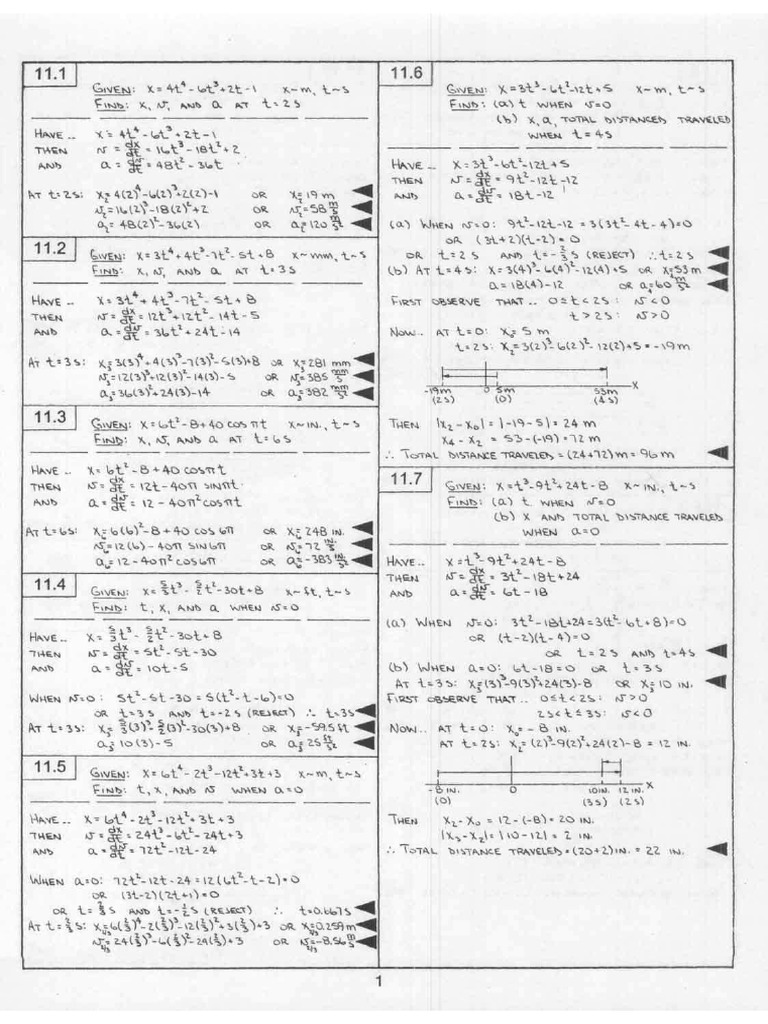 11.1
GIVEN: x = 4t⁴ - 6t³ + 2t - 1   x~m, t~s
FIND: x, v, AND a AT t = 2s
HAVE.. x = 4t⁴ - 6t³ + 2t - 1
THEN v = dx/dt = 16t³ - 18t² + 2
AND a = dv/dt = 48t² - 36t
AT t = 2s: x₂ = 4(2)⁴ - 6(2)³ + 2(2) - 1 OR x₂ = 19 m
v₂ = 16(2)³ - 18(2)² + 2 OR v₂ = 58 m/s
a₂ = 48(2)² - 36(2) OR a₂ = 120 m/s²
11.2
GIVEN: x = 3t⁴ + 4t³ - 7t² - 5t + 8   x~mm, t~s
FIND: x, v, AND a AT t = 3s
HAVE.. x = 3t⁴ + 4t³ - 7t² - 5t + 8
THEN v = dx/dt = 12t³ + 12t² - 14t - 5
AND a = dv/dt = 36t² + 24t - 14
AT t = 3s: x₃ = 3(3)⁴ + 4(3)³ - 7(3)² - 5(3) + 8 OR x₃ = 281 mm
v₃ = 12(3)³ + 12(3)² - 14(3) - 5 OR v₃ = 385 mm/s
a₃ = 36(3)² + 24(3) - 14 OR a₃ = 382 mm/s²
11.3
GIVEN: x = 6t² - 8 + 40 cos πt   x~IN., t~s
FIND: x, v, AND a AT t = 6s
HAVE.. x = 6t² - 8 + 40 cos πt
THEN v = dx/dt = 12t - 40π sin πt
AND a = dv/dt = 12 - 40π² cos πt
AT t = 6s: x₆ = 6(6)² - 8 + 40 cos 6π OR x₆ = 248 IN.
v₆ = 12(6) - 40π sin 6π OR v₆ = 72 IN./s
a₆ = 12 - 40π² cos 6π OR a₆ = -383 IN./s²
11.4
GIVEN: x = 5/3 t³ - 5/2 t² - 30t + 8   x~ft, t~s
FIND: t, x, AND a WHEN v = 0
HAVE.. x = 5/3 t³ - 5/2 t² - 30t + 8
THEN v = dx/dt = 5t² - 5t - 30
AND a = dv/dt = 10t - 5
WHEN v = 0: 5t² - 5t - 30 = 5(t² - t - 6) = 0
OR t = 3s AND t = -2s (REJECT) ∴ t = 3s
AT t = 3s: x₃ = 5/3(3)³ - 5/2(3)² - 30(3) + 8 OR x₃ = -59.5 ft
a₃ = 10(3) - 5 OR a₃ = 25 ft/s²
11.5
GIVEN: x = 6t⁴ - 2t³ - 12t² + 3t + 3   x~m, t~s
FIND: t, x, AND v WHEN a = 0
HAVE.. x = 6t⁴ - 2t³ - 12t² + 3t + 3
THEN v = dx/dt = 24t³ - 6t² - 24t + 3
AND a = dv/dt = 72t² - 12t - 24
WHEN a = 0: 72t² - 12t - 24 = 12(6t² - t - 2) = 0
OR (3t - 2)(2t + 1) = 0
OR t = 2/3 s AND t = -1/2 s (REJECT) ∴ t = 0.667 s
AT t = 2/3 s: x₂/₃ = 6(2/3)⁴ - 2(2/3)³ - 12(2/3)² + 3(2/3) + 3 OR x₂/₃ = 0.259 m
v₂/₃ = 24(2/3)³ - 6(2/3)² - 24(2/3) + 3 OR v₂/₃ = -8.56 m/s
11.6
GIVEN: x = 3t³ - 6t² - 12t + 5   x~m, t~s
FIND: (a) t WHEN v = 0
(b) x, a, TOTAL DISTANCE TRAVELED
WHEN t = 4s
HAVE.. x = 3t³ - 6t² - 12t + 5
THEN v = dx/dt = 9t² - 12t - 12
AND a = dv/dt = 18t - 12
(a) WHEN v = 0: 9t² - 12t - 12 = 3(3t² - 4t - 4) = 0
OR (3t + 2)(t - 2) = 0
OR t = 2s AND t = -2/3 s (REJECT) ∴ t = 2s
(b) AT t = 4s: x₄ = 3(4)³ - 6(4)² - 12(4) + 5 OR x₄ = 53 m
a₄ = 18(4) - 12 OR a₄ = 60 m/s²
FIRST OBSERVE THAT.. 0 ≤ t < 2s: v < 0
t > 2s: v > 0
NOW.. AT t = 0: x₀ = 5 m
t = 2s: x₂ = 3(2)³ - 6(2)² - 12(2) + 5 = -19 m
-19m 0 5m 53m x
(2s) (0) (4s)
THEN |x₂ - x₀| = |-19 - 5| = 24 m
x₄ - x₂ = 53 - (-19) = 72 m
∴ TOTAL DISTANCE TRAVELED = (24 + 72) m = 96 m
11.7
GIVEN: x = t³ - 9t² + 24t - 8   x~IN., t~s
FIND: (a) t WHEN v = 0
(b) x AND TOTAL DISTANCE TRAVELED
WHEN a = 0
HAVE.. x = t³ - 9t² + 24t - 8
THEN v = dx/dt = 3t² - 18t + 24
AND a = dv/dt = 6t - 18
(a) WHEN v = 0: 3t² - 18t + 24 = 3(t² - 6t + 8) = 0
OR (t - 2)(t - 4) = 0
OR t = 2s AND t = 4s
(b) WHEN a = 0: 6t - 18 = 0 OR t = 3s
AT t = 3s: x₃ = (3)³ - 9(3)² + 24(3) - 8 OR x₃ = 10 IN.
FIRST OBSERVE THAT.. 0 ≤ t < 2s: v > 0
2s < t ≤ 3s: v < 0
NOW.. AT t = 0: x₀ = -8 IN.
AT t = 2s: x₂ = (2)³ - 9(2)² + 24(2) - 8 = 12 IN.
-8 IN. 0 10IN. 12 IN. x
(0) (3s) (2s)
THEN x₂ - x₀ = 12 - (-8) = 20 IN.
|x₃ - x₂| = |10 - 12| = 2 IN.
∴ TOTAL DISTANCE TRAVELED = (20 + 2) IN. = 22 IN.
1